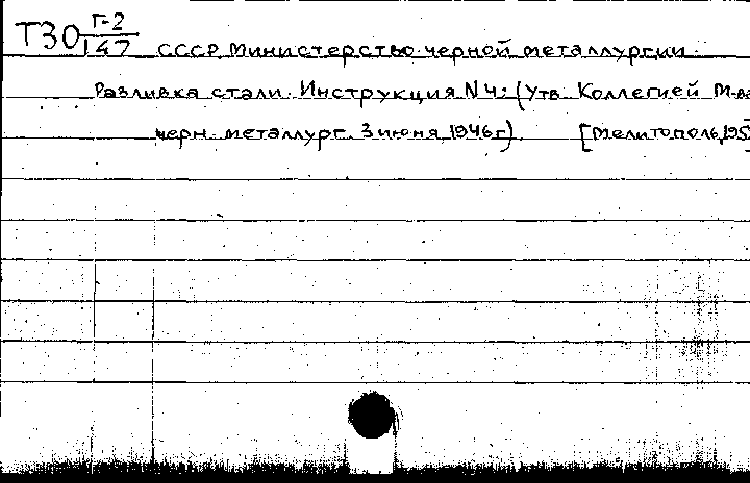 Т30 Г-2/147 СССР. Министерство черной металлургии.
Разливка стали. Инструкция N 4: (Утв. Коллегией М-ва
черн. металлург. 3 июня 1946 г). [Мелитополь, 195